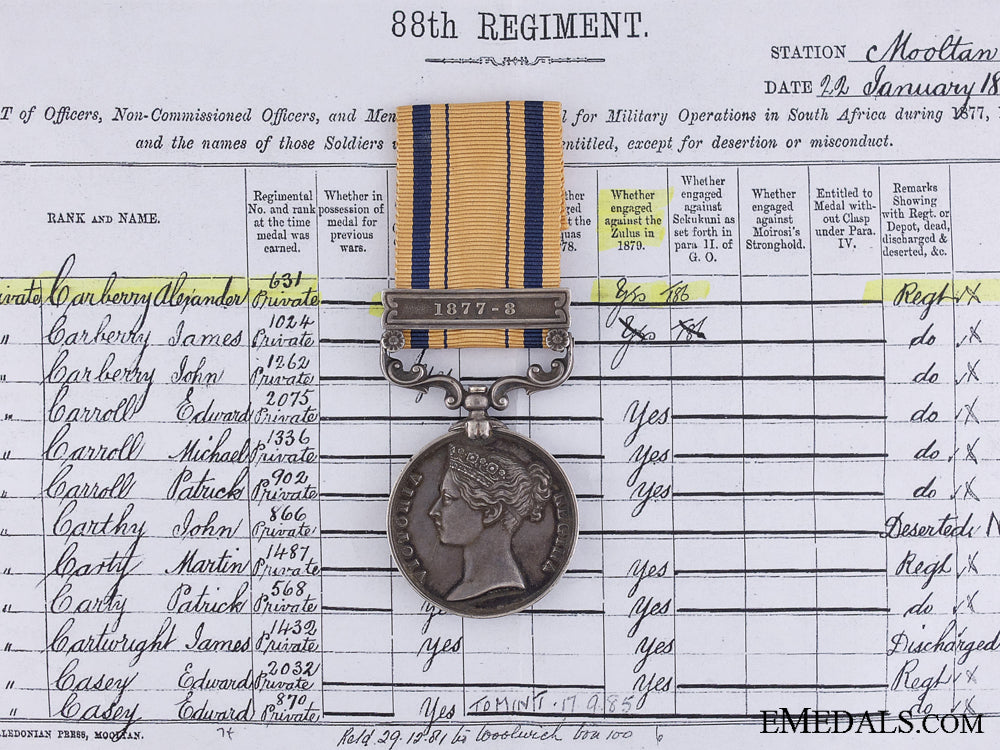 88th REGIMENT.
STATION Mooltan
DATE 22 January 18
T of Officers, Non-Commissioned Officers, and Men l for Military Operations in South Africa during 1877,
and the names of those Soldiers entitled, except for desertion or misconduct.
RANK AND NAME.
Regimental No. and rank at the time medal was earned.
Whether in possession of medal for previous wars.
78.
Whether engaged against the Zulus in 1879.
Whether engaged against Sekukuni as set forth in para II. of G. O.
Whether engaged against Moirosi's Stronghold.
Entitled to Medal with-out Clasp under Para. IV.
Remarks Showing with Regt. or Depot, dead, discharged & deserted, &c.
ivate Carberry Alexander 631 Private Yes Regt
" Carberry James 1024 Private Yes do
" Carberry John 1262 Private do
" Carroll Edward 2075 Private Yes do
" Carroll Michael 1336 Private Yes do
" Carroll Patrick 902 Private Yes do
" Carthy John 866 Private Deserted N
" Carty Martin 1487 Private Yes Regt
" Carty Patrick 568 Private Yes do
" Cartwright James 1432 Private Yes Yes Discharged
" Casey Edward 2032 Private Yes Regt
" Casey Edward 870 Private Yes TO MINT. 17.9.85 do
LEDONIAN PRESS, MOOLTAN.
29.12.81 to Woolwich box 100
1877-8
VICTORIA REGINA
EMEDALS.COM